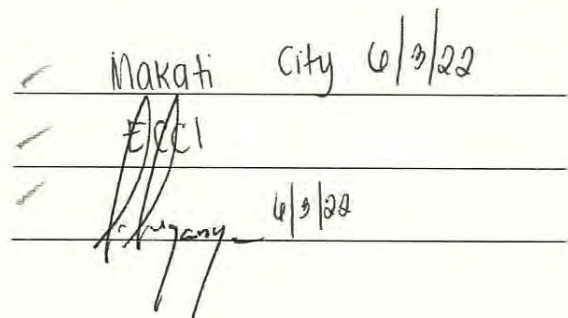 Makati City 6/3/22
ECCI
6/3/22